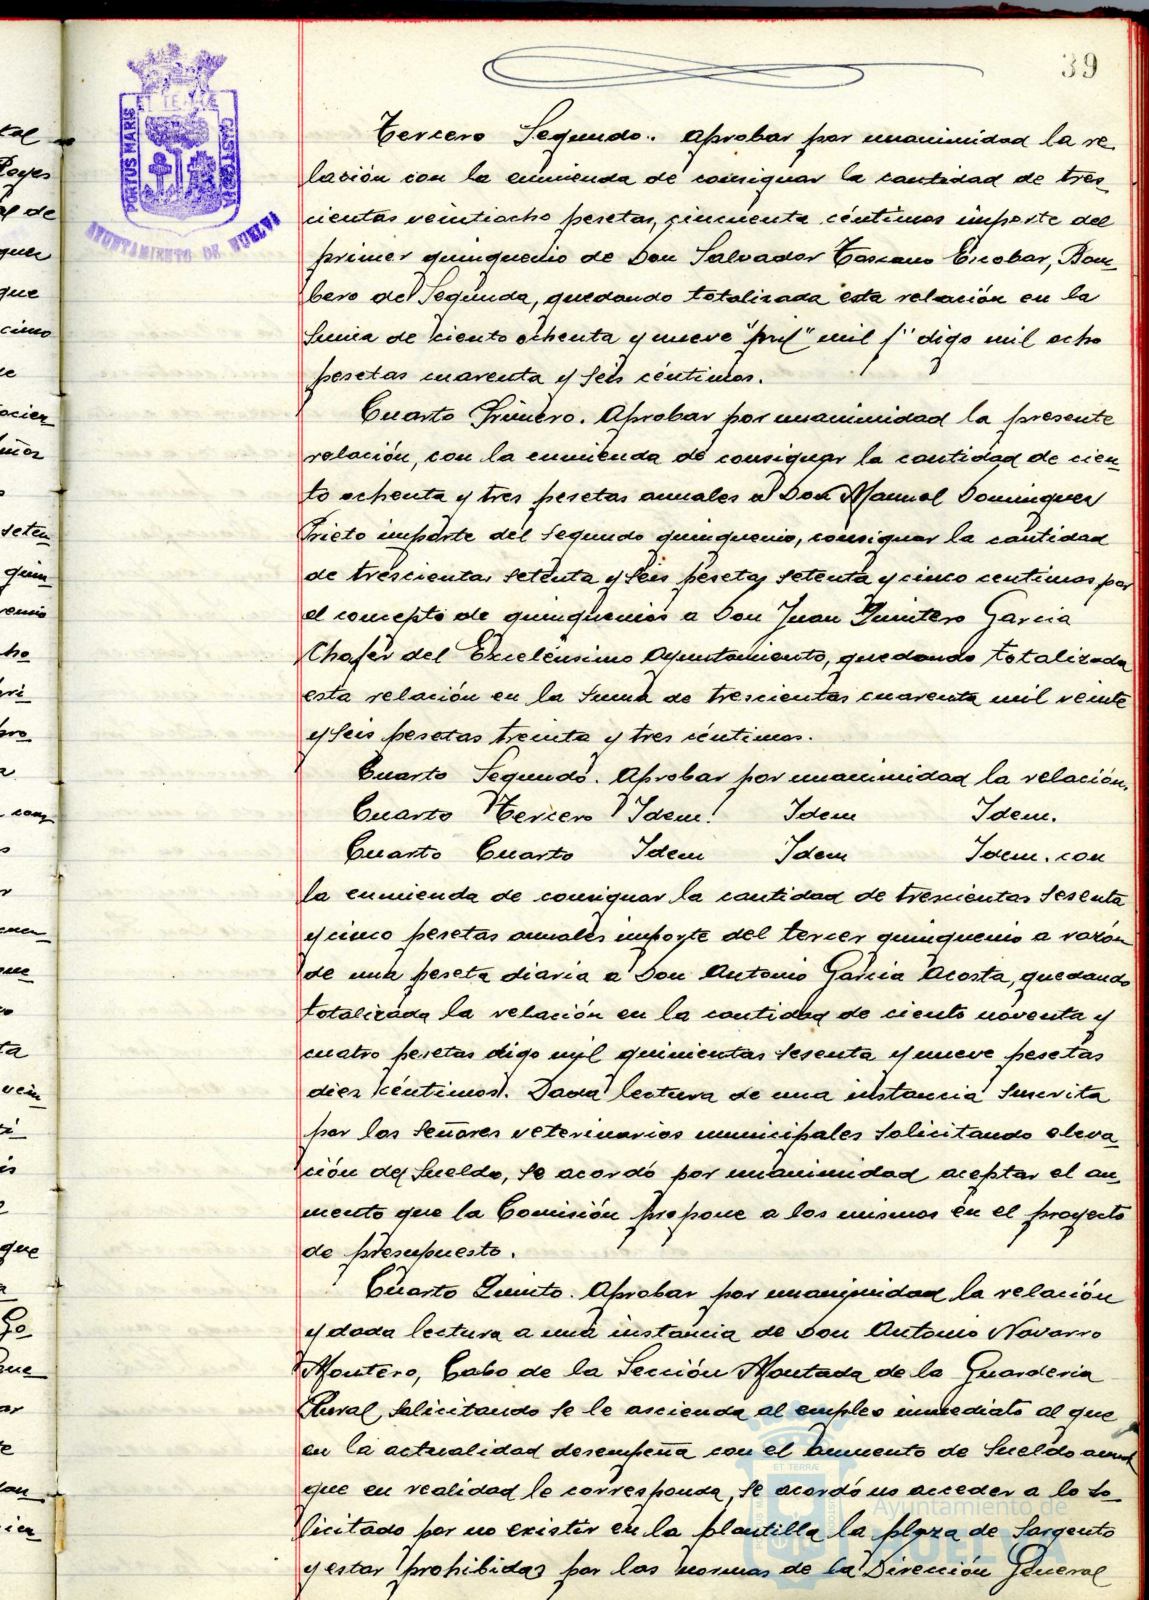 39
ET TERRÆ
PORTUS MARIS
CUSTODIA
AYUNTAMIENTO DE HUELVA
Tercero Segundo. Aprobar por unanimidad la re
lación con la enmienda de consignar la cantidad de tres-
cientas veintiocho pesetas, cincuenta céntimos importe del
primer quinquenio de Don Salvador Toscano Escobar, Bom-
bero de Segunda, quedando totalizada esta relación en la
Suma de ciento ochenta y nueve "mil" mil /" digo mil ocho
pesetas cuarenta y seis céntimos.
Cuarto Primero. Aprobar por unanimidad la presente
relación, con la enmienda de consignar la cantidad de cien-
to ochenta y tres pesetas anuales a Don Manuel Dominguez
Prieto importe del segundo quinquenio, consignar la cantidad
de trescientas setenta y seis pesetas setenta y cinco centimos por
el concepto de quinquenios a Don Juan Quintero Garcia
Chofer del Excelensimo Ayuntamiento, quedando totalizada
esta relación en la suma de trescientas cuarenta mil veinte
y seis pesetas treinta y tres céntimos.
Cuarto Segundo. Aprobar por unanimidad la relación.
Cuarto Tercero Idem. Idem Idem.
Cuarto Cuarto Idem Idem Idem. con
la enmienda de consignar la cantidad de trescientas sesenta
y cinco pesetas anuales importe del tercer quinquenio a razón
de una peseta diaria a Don Antonio Garcia Acosta, quedando
totalizada la relación en la cantidad de ciento noventa y
cuatro pesetas digo mil quinientas sesenta y nueve pesetas
diez céntimos. Dada lectura de una instancia suscrita
por los Señores veterinarios municipales solicitando eleva-
ción de Sueldo, se acordó por unanimidad aceptar el au-
mento que la Comisión propone a los mismos en el proyecto
de presupuesto.
Cuarto Quinto. Aprobar por unanimidad la relación
y dada lectura a una instancia de Don Antonio Navarro
Montero, Cabo de la Sección Montada de la Guarderia
Rural, solicitando se le ascienda al empleo inmediato al que
en la actualidad desempeña con el aumento de Sueldo anual
que en realidad le corresponda, se acordó no acceder a lo so-
licitado por no existir en la plantilla la plaza de Sargento
y estar prohibidas por las normas de la Dirección General
Ayuntamiento de
HUELVA